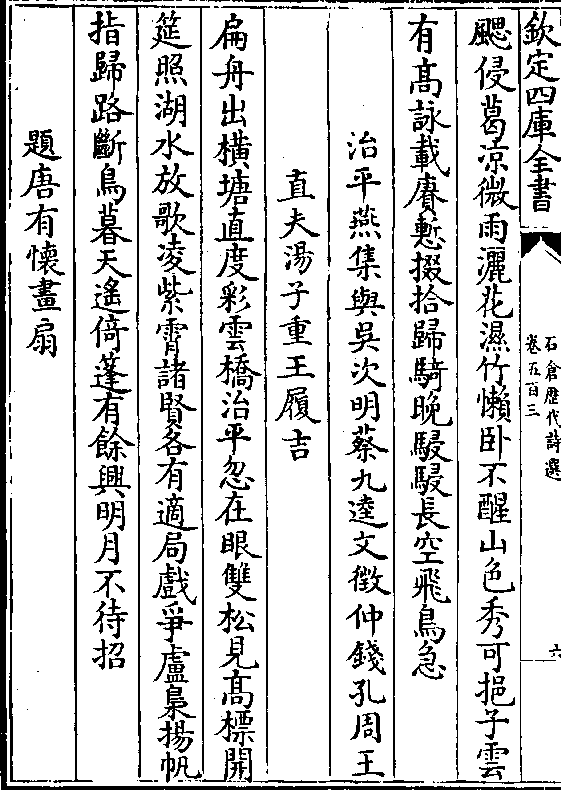 欽定四庫全書
石倉歷代詩選
卷五百三
六
颸侵葛凉微雨灑花濕竹懶卧不醒山色秀可挹子雲
有髙詠載賡慙掇拾歸騎晚駸駸長空飛鳥急
治平燕集與吳次明蔡九逵文徵仲錢孔周王
直夫湯子重王履吉
扁舟出橫塘直度彩雲橋治平忽在眼雙松見髙標開
筵照湖水放歌凌紫霄諸賢各有適局戲爭盧梟揚帆
指歸路斷鳥暮天遙倚蓬有餘興明月不待招
題唐有懷畫扇